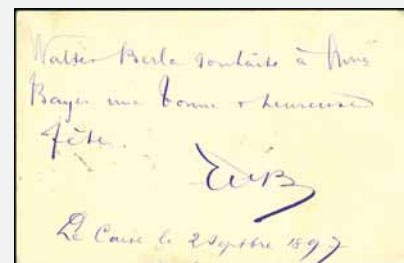 Walter Berla souhaite à Mme
Bayer une bonne & heureuse
fête.
Le Caire le 2 Septbre 1897